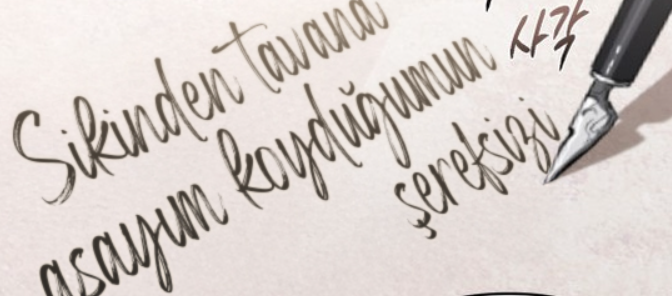 사각
Sikinden tavana
asayım koyduğumun
şerefsizi